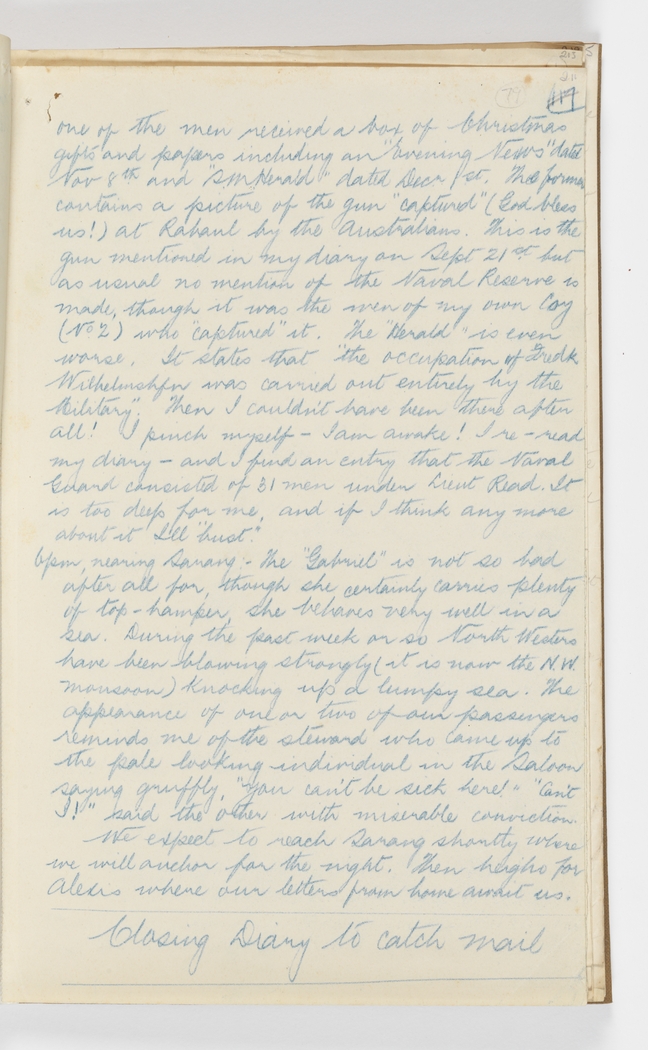 213
211
(77)
117
one of the men received a box of Christmas
gifts and papers including an "Evening News" dated
Nov 8th and "SMHerald" dated Decr 1st. The former
contains a picture of the gun "captured" (God bless
us!) at Rabaul by the Australians. This is the
gun mentioned in my diary on Sept 21st but
as usual no mention of the Naval Reserve is
made, though it was the men of my own Coy
(No 2) who "captured" it. The "Herald" is even
worse. It states that "the occupation of Fredk
Wilhelmshfn was carried out entirely by the
Military". Then I couldn't have been there after
all! I pinch myself - I am awake! I re-read
my diary - and I find an entry that the Naval
Guard consisted of 31 men under Lieut Read. It
is too deep for me, and if I think any more
about it I'll "bust".
6pm, nearing Sarang:- The "Gabriel" is not so bad
after all for, though she certainly carries plenty
of top-hamper, she behaves very well in a
sea. During the past week or so North Westers
have been blowing strongly (it is now the N.W.
monsoon) knocking up a lumpy sea. The
appearance of one or two of our passengers
reminds me of the steward who came up to
the pale looking individual in the Saloon
saying gruffly, "You can't be sick here!" "Can't
I!" said the other with miserable conviction.
We expect to reach Sarang shortly where
we will anchor for the night. Then heigho for
Alexis where our letters from home await us.
Closing Diary to catch mail